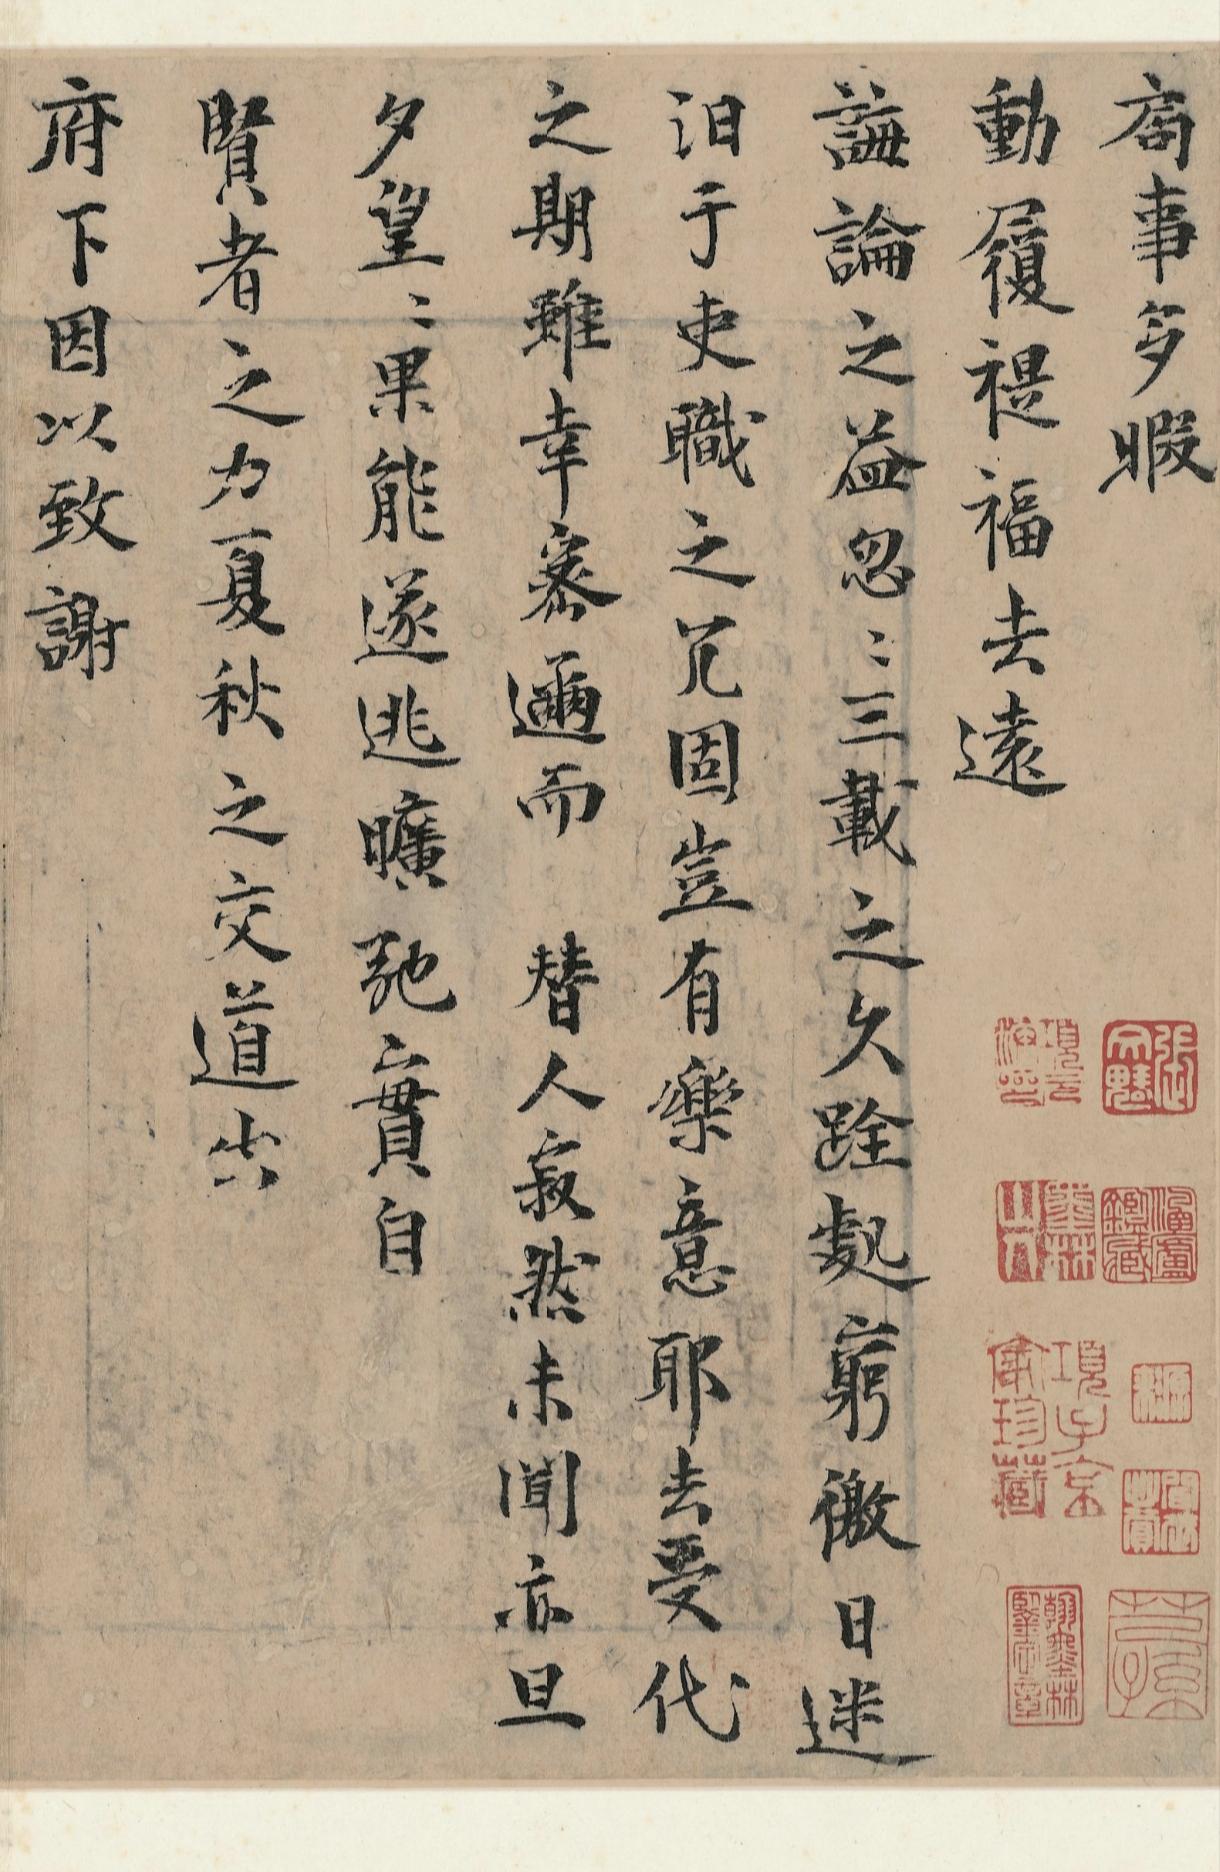 齋事多暇
動履禔福去遠
誨論之益忽〻三載之久跧處窮徼日迷
汩于吏職之冗固豈有樂意耶去受代
之期雖幸密邇而 替人寂然未聞亦旦
夕望〻果能遂逃曠弛實自
賢者之力夏秋之交道出
府下因以致謝
項子京家珍藏